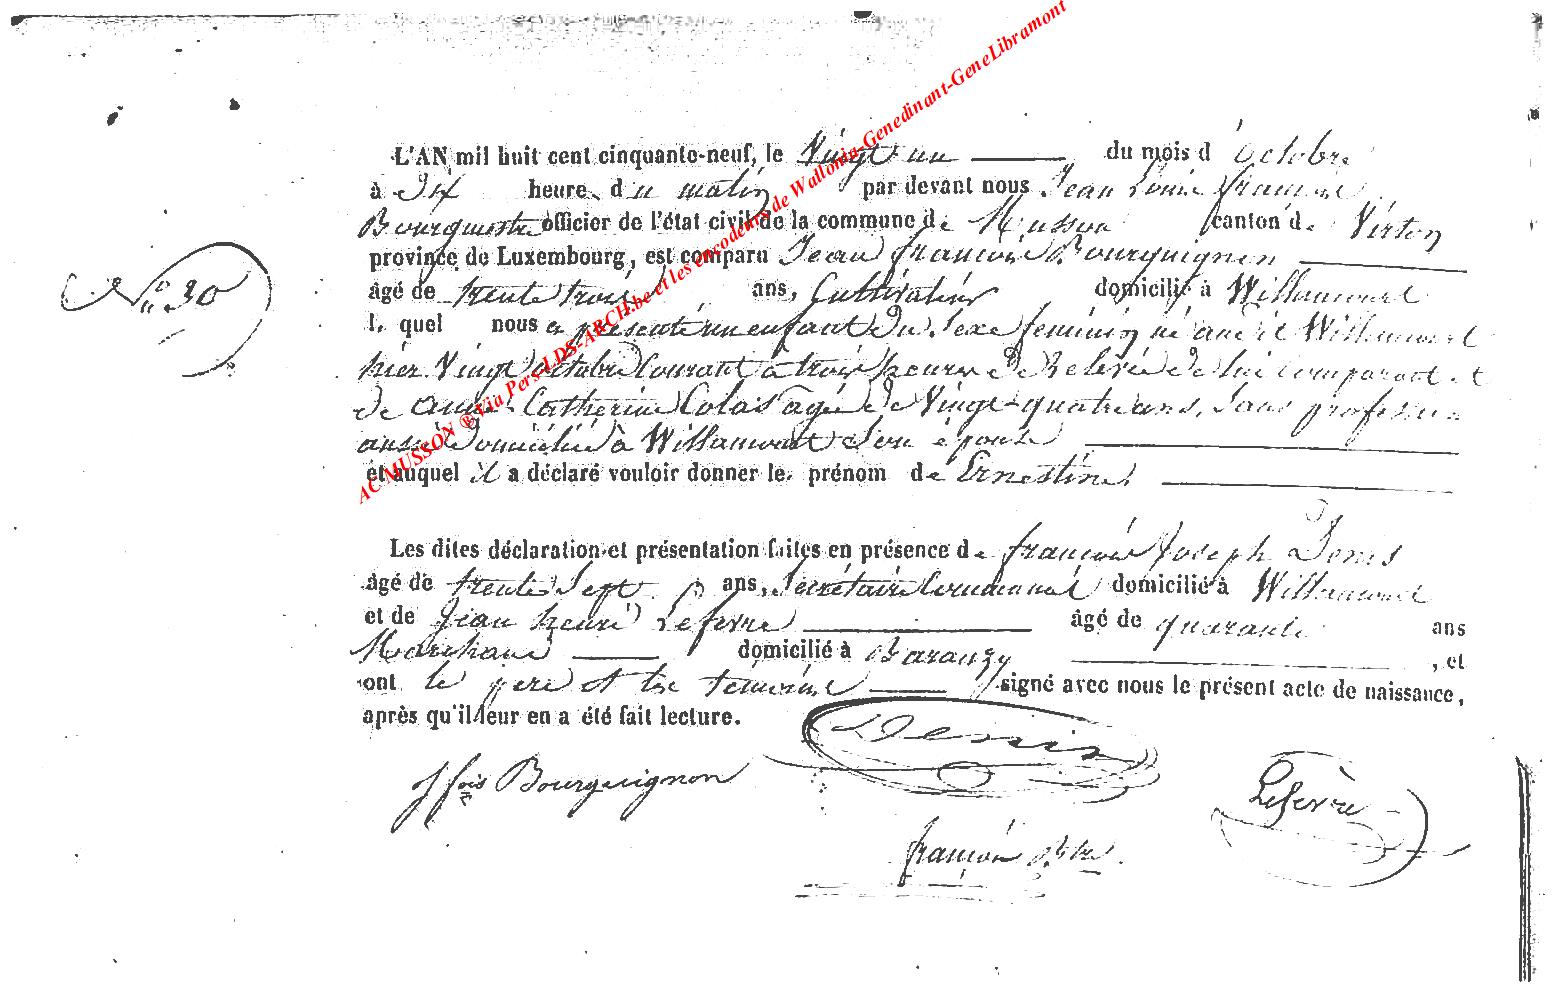 L'AN mil huit cent cinquante-neuf, le Vingt un du mois d'octobre
à Dix heure du matin par devant nous Jean Louis françois
Bourguestre officier de l'état civil de la commune de Musson canton de Virton
province de Luxembourg, est comparu Jean françois Bourguignon
N° 30
âgé de trente trois ans, Cultivateur domicilié à Willancourt
lequel nous a présenté un enfant du Sexe feminin né audit Willancourt
hier Vingt octobre Courant à trois heures de Relevée de lui comparant et
de Catherine Colas agée de Vingt-quatre ans, Sans profession
aussi domiciliée à Willancourt Son épouse
et auquel il a déclaré vouloir donner le prénom de Ernestine.
Les dites déclaration et présentation faites en présence de françois Joseph Denis
âgé de trente Sept ans, Secrétaire Communal domicilié à Willancourt
et de Jean henri Lefevre âgé de quarante ans
Marchand domicilié à Baranzy , et
ont le père et les témoins signé avec nous le présent acte de naissance,
après qu'il leur en a été fait lecture.
Denis
J fois Bourguignon
Lefèvre
françois
AC MUSSON ® Via Pers-LDS-ARCH.be et les encodeurs de Wallonia-Genedinant-GeneLibramont